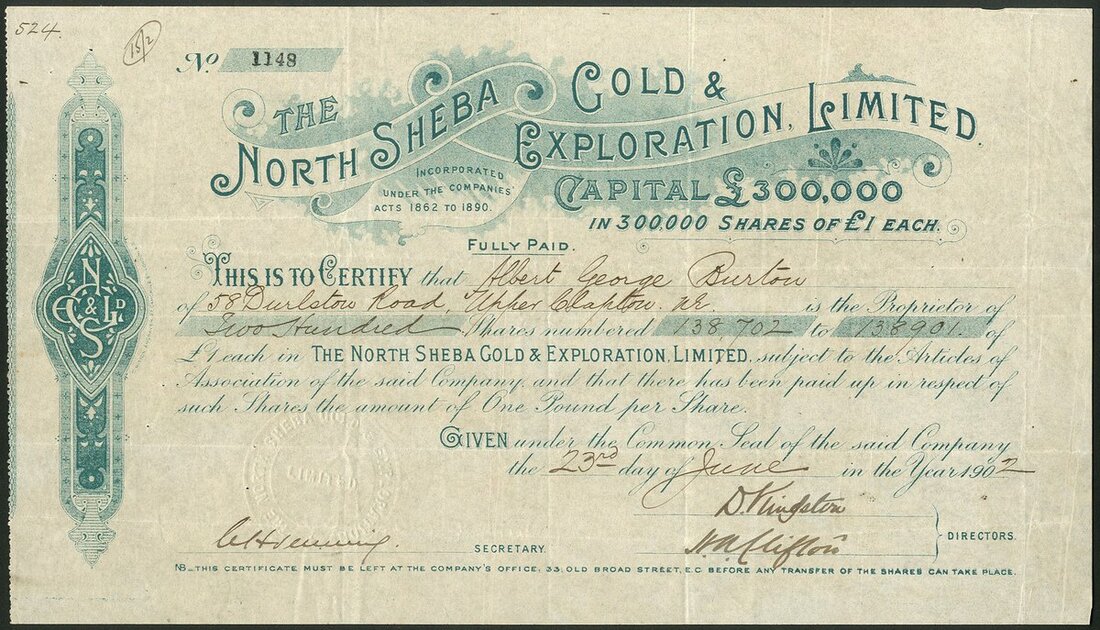 524.
15/2
No. 1148
THE
NORTH SHEBA GOLD &
EXPLORATION, LIMITED.
INCORPORATED
UNDER THE COMPANIES'
ACTS 1862 TO 1890.
CAPITAL £300,000
IN 300,000 SHARES OF £1 EACH.
FULLY PAID.
THIS IS TO CERTIFY that Albert George Burton
of 58 Durlston Road, Upper Clapton. NE is the Proprietor of
Two Hundred Shares numbered 138,702 to 138901. of
£1 each in THE NORTH SHEBA GOLD & EXPLORATION, LIMITED, subject to the Articles of
Association of the said Company, and that there has been paid up in respect of
such Shares the amount of One Pound per Share.
GIVEN under the Common Seal of the said Company
the 23rd day of June in the Year 1902
D. Kingston
H. A. Clifton
DIRECTORS.
SECRETARY.
NB_THIS CERTIFICATE MUST BE LEFT AT THE COMPANY'S OFFICE, 33, OLD BROAD STREET, E.C. BEFORE ANY TRANSFER OF THE SHARES CAN TAKE PLACE.
N
G & E LD
S
LIMITED